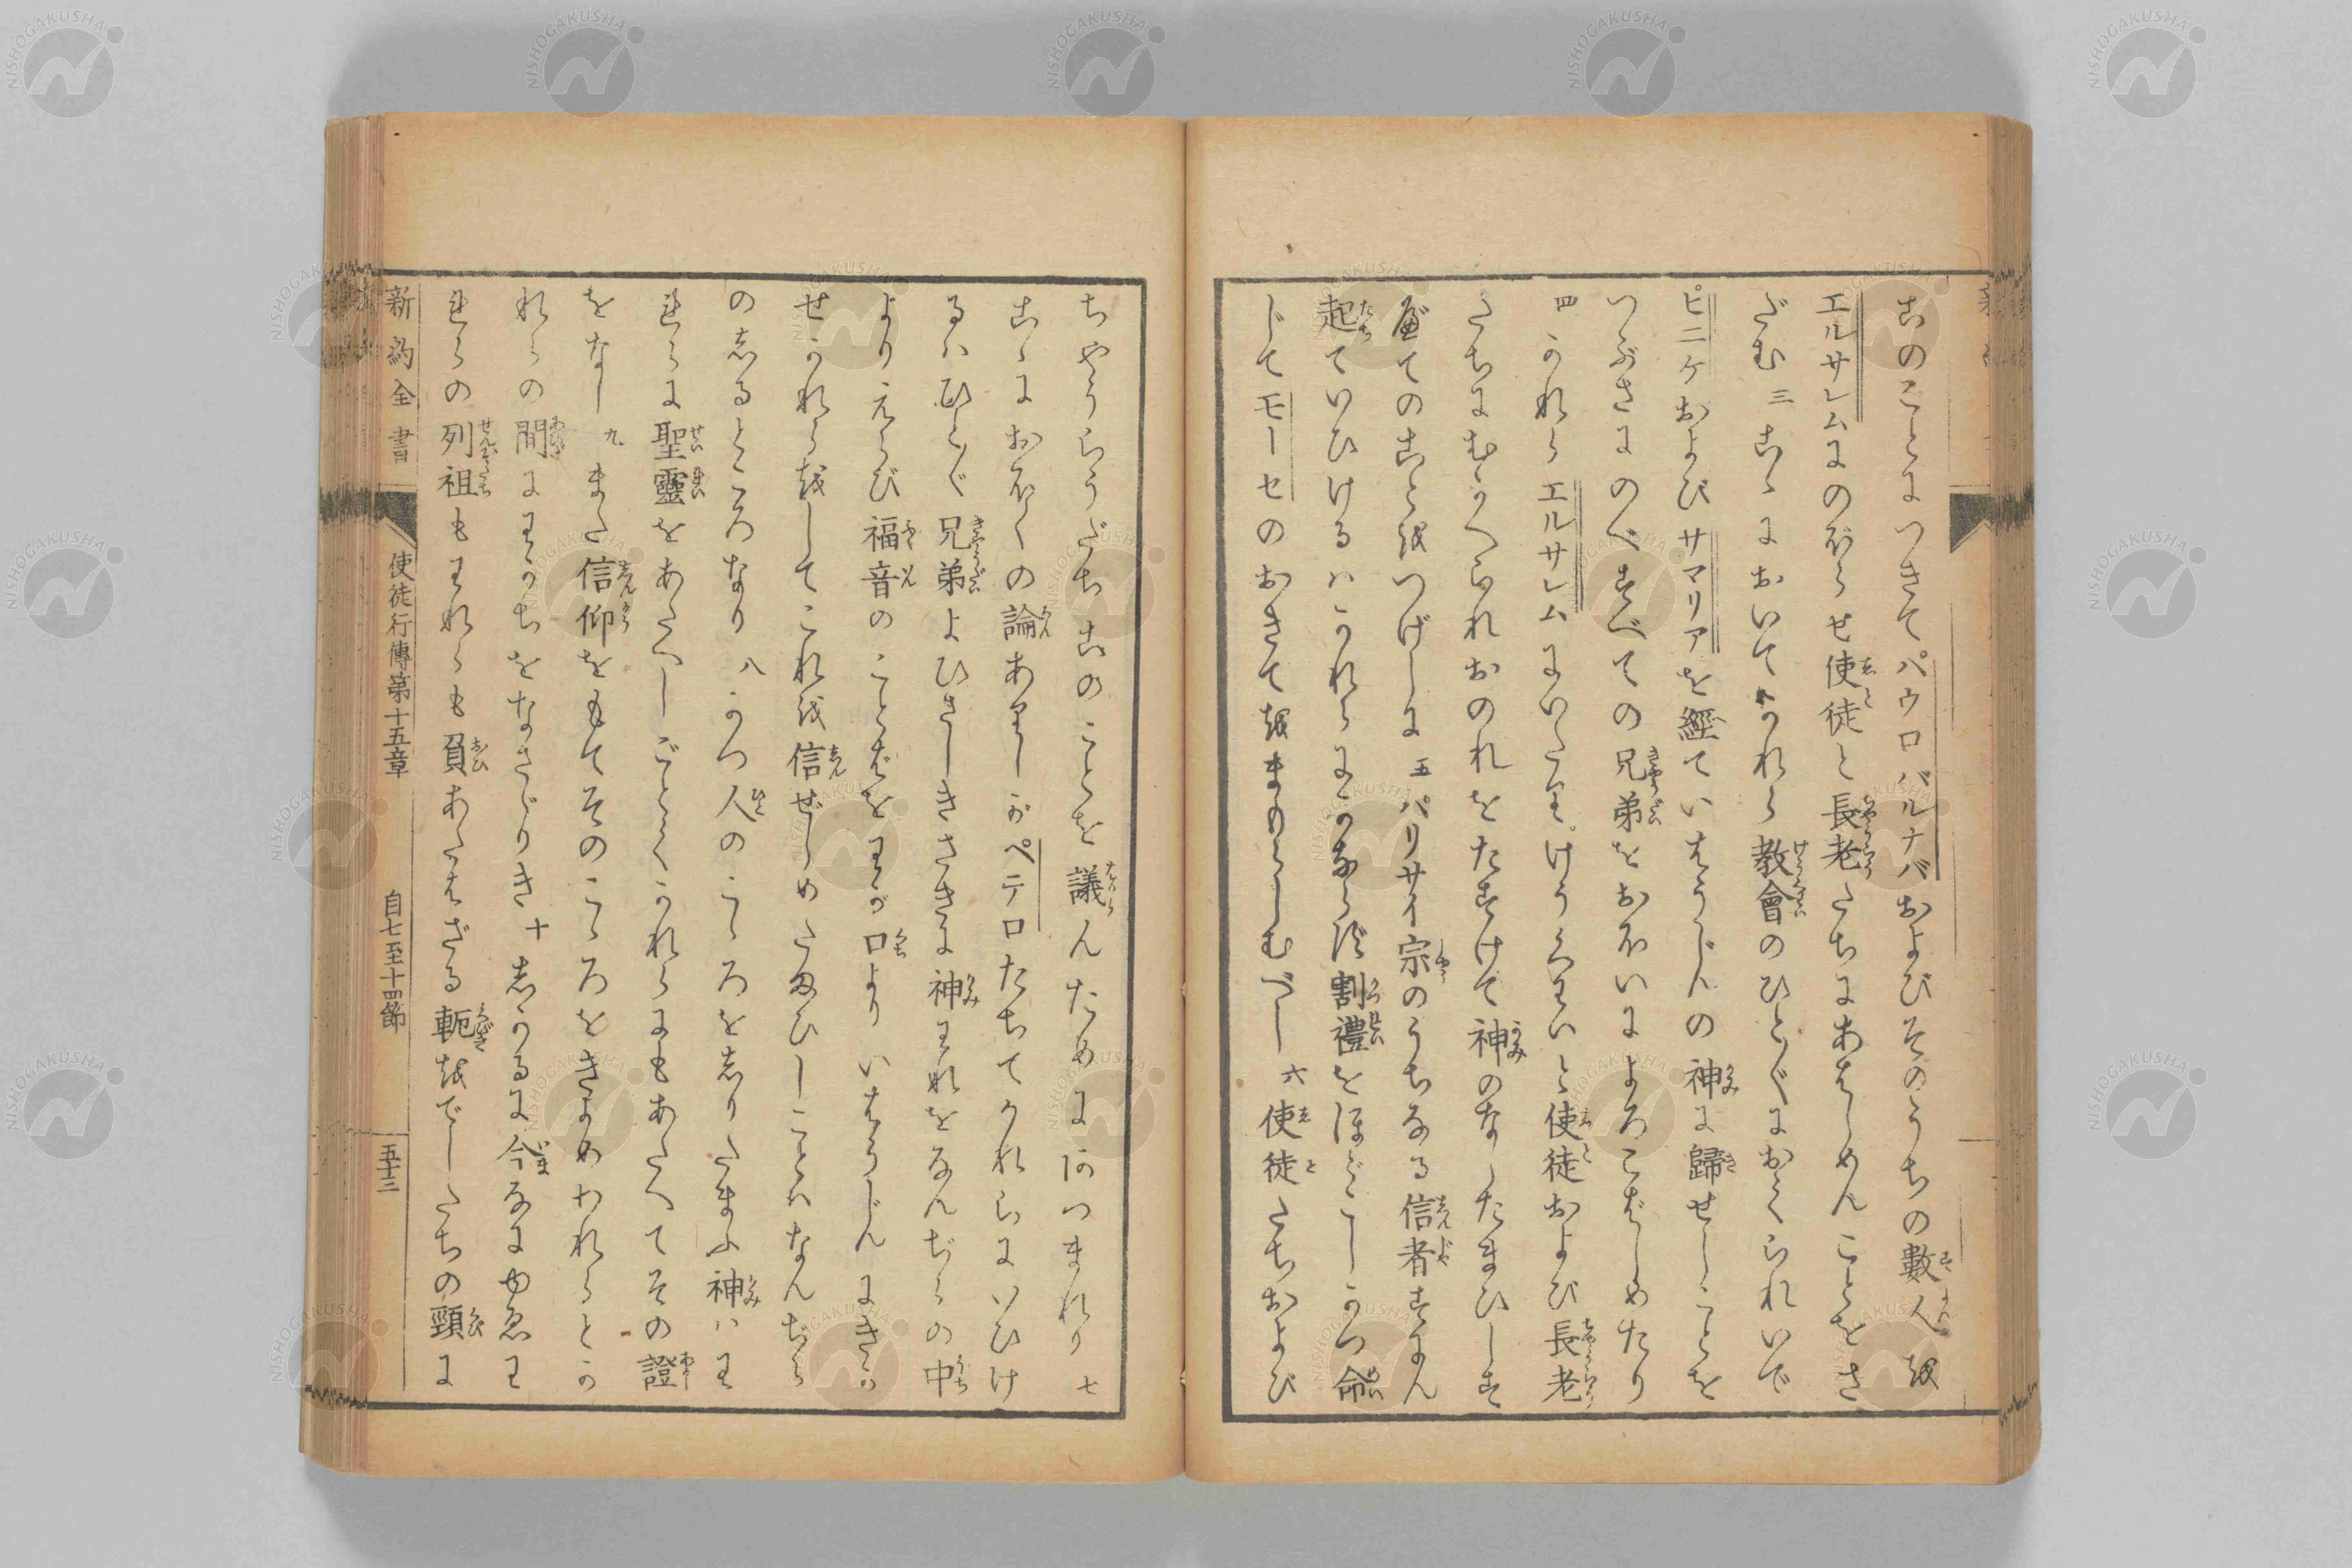 このことにつきてパウロバルナバおよびそのうちの數人を
エルサレムにのぼらせ使徒と長老たちにあはしめんことをさ
だむ 三 こゝにおいてかれら教會のひと〴〵におくられいで
ピニケおよびサマリアを經ていはうじんの神に歸せしことを
つぶさにのべすべての兄弟をおほいによろこばしめたり
四 かれらエルサレムにいたり けうくわいと使徒および長老
たちにむかへられおのれをたすけて神のなしたまひしす
べてのことをつげしに 五 パリサイ宗のうちなる信者すにん
起ていひけるハかれらにかならず割禮をほどこしかつ命
じてモーセのおきてをまもらしむべし 六 使徒たちおよび
ちやうらうだちこのことを議んためにあつまれり 七
こゝにおほくの論ありしがペテロたちてかれらにいひけ
るハひと〴〵兄弟よひさしきさきに神われをなんぢらの中
よりえらび福音のことばをわが口よりいはうじんにきか
せかれらをしてこれを信ぜしめたまひしことハなんぢら
のしるところなり 八 かつ人のこゝろをしりたまふ神ハわ
れらに聖靈をあたへしごとくかれらにもあたへてその證
をなし 九 また信仰をもてそのこゝろをきよめわれらとか
れらの間にわかちをなさゞりき 十 しかるに今なにゆゑわ
れらの列祖もわれらも負あたはざる軛をでしたちの頸に
新約全書 使徒行傳第十五章 自七至十四節 五十三
NISHOGAKUSHA